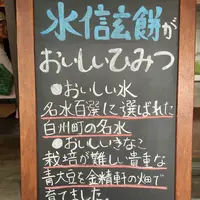 水信玄餅が
おいしいひみつ
●おいしい水
名水百選に選ばれた
白州町の名水
●おいしいきなこ
栽培が難しい貴重な
青大豆を金精軒の畑で
育てました。